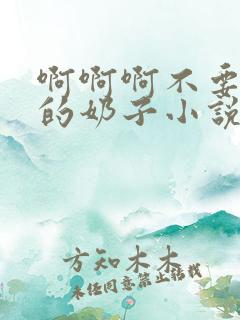 啊啊啊不要
的奶子小说
方知木木
未经同意禁止转载